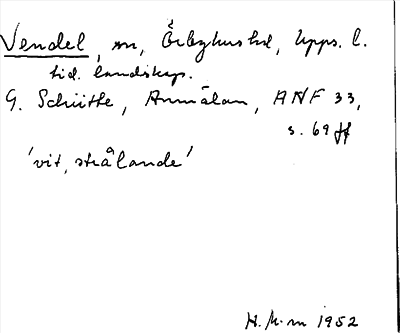 Vendel, sn, Örbyhus hd, Upps. l.
tid. landskap.
G. Schütte, Anmälan, ANF 33,
s. 69 ff
'vit, strålande'
H. M-m 1952